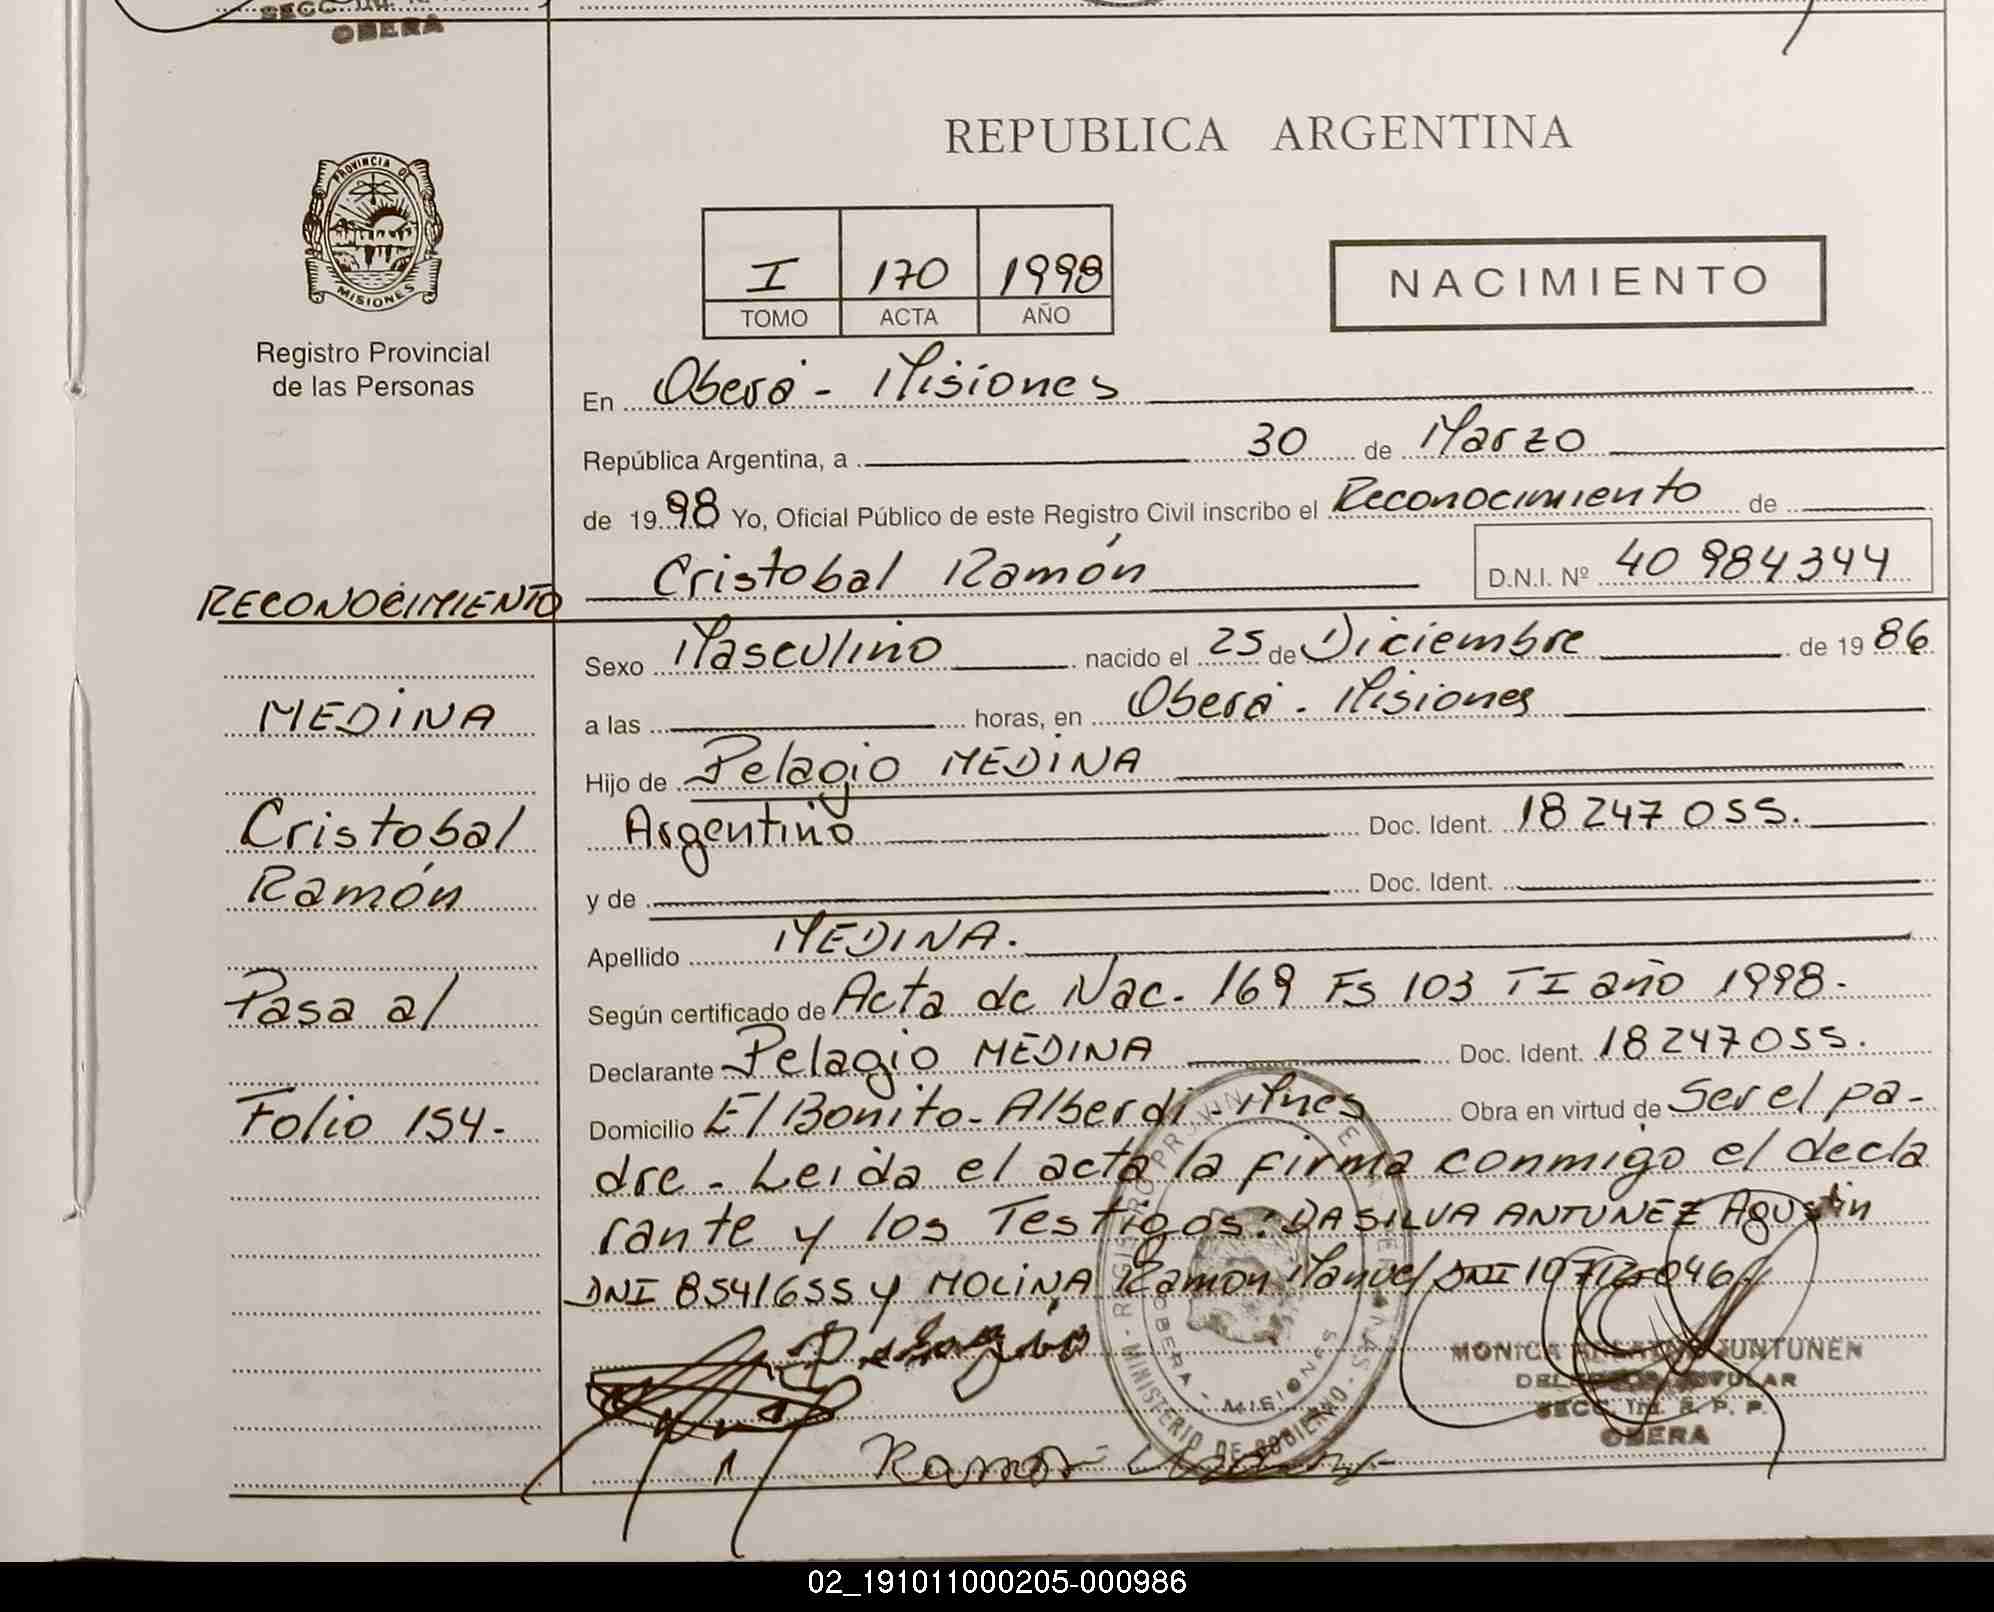 OBERA
REPUBLICA ARGENTINA
PROVINCIA DE
MISIONES
Registro Provincial
de las Personas
I 170 1998
TOMO ACTA AÑO
NACIMIENTO
En Oberá - Misiones
República Argentina, a 30 de Marzo
de 1998 Yo, Oficial Público de este Registro Civil inscribo el Reconocimiento de
Cristobal Ramón D.N.I. Nº 40 984344
RECONOCIMIENTO
MEDINA
Cristobal
Ramón
Pasa al
Folio 154.
Sexo Masculino nacido el 25 de Diciembre de 1986
a las horas, en Oberá - Misiones
Hijo de Pelagio MEDINA
Argentino Doc. Ident. 18 247 055.
y de Doc. Ident.
Apellido MEDINA.
Según certificado de Acta de Nac. 169 Fs 103 TI año 1998.
Declarante Pelagio MEDINA Doc. Ident. 18247055.
Domicilio El Bonito - Alberdi - Mnes Obra en virtud de Ser el pa-
dre - Leida el acta la firma conmigo el decla
rante y los Testigos: DA SILVA ANTUNEZ Agustin
DNI 8541655 y MOLINA Ramon Manuel DNI
Pelagio
MONICA JUNTUNEN
OBERA
Ramon
MINISTERIO DE GOBIERNO
OBERA - MISIONES
02_191011000205-000986